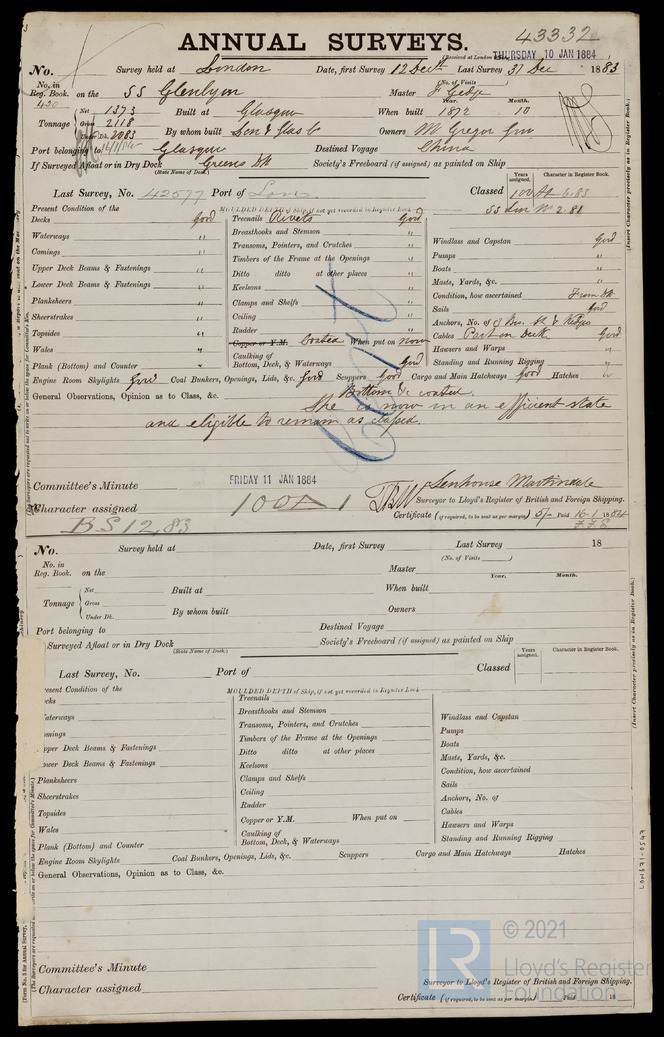 43332
ANNUAL SURVEYS.
Received at London
THURSDAY 10 JAN 1884
No. Survey held at London Date, first Survey 12 Decr Last Survey 31 Dec 1883
(No. of Visits)
No. in Reg. Book. on the SS Glenlyon Master
430
Year. Month.
Tonnage Net 1373 Built at Glasgow When built 1872 10
Gross 2118
Under Dk. 2083 By whom built Owners McGregor
Port belonging to Glasgow Destined Voyage China
If Surveyed Afloat or in Dry Dock Greens Dk Society's Freeboard (if assigned) as painted on Ship
(State Name of Dock.)
Years assigned. Character in Register Book.
Last Survey, No. 42577 Port of Lon Classed 100 A1 6.83
SS Lon No 2.81
(Insert Character precisely as in Register Book.)
Present Condition of the
Decks Good
Waterways "
Comings "
Upper Deck Beams & Fastenings "
Lower Deck Beams & Fastenings "
Planksheers "
Sheerstrakes "
Topsides "
Wales "
Plank (Bottom) and Counter "
MOULDED DEPTH of Ship, if not yet recorded in Register Book
Treenails Rivets Good
Breasthooks and Stemson "
Transoms, Pointers, and Crutches "
Timbers of the Frame at the Openings "
Ditto ditto at other places "
Keelsons "
Clamps and Shelfs "
Ceiling "
Rudder "
Copper or Y.M. Coated When put on now
Caulking of
Bottom, Deck, & Waterways Good
Windlass and Capstan Good
Pumps "
Boats "
Masts, Yards, &c. "
Condition, how ascertained From Dk
Sails Good
Anchors, No. of
Cables Part on Deck Good
Hawsers and Warps "
Standing and Running Rigging "
Engine Room Skylights Good Coal Bunkers, Openings, Lids, &c. Good Scuppers Good Cargo and Main Hatchways Good Hatches "
General Observations, Opinion as to Class, &c. Bottom coated.
She is now in an efficient state
and eligible to remain as classed.
Committee's Minute FRIDAY 11 JAN 1884 Senhouse Martindale
Surveyor to Lloyd's Register of British and Foreign Shipping.
Character assigned 100A1
Certificate (if required, to be sent as per margin) 5/- Paid 16.1 1884
BS 12,83
No. Survey held at Date, first Survey Last Survey 18
(No. of Visits)
No. in Reg. Book. on the Master
Year. Month.
Tonnage Net Built at When built
Gross
Under Dk. By whom built Owners
Port belonging to Destined Voyage
Surveyed Afloat or in Dry Dock Society's Freeboard (if assigned) as painted on Ship
(State Name of Dock.)
Years assigned. Character in Register Book.
Last Survey, No. Port of Classed
(Insert Character precisely as in Register Book.)
MOULDED DEPTH of Ship, if not yet recorded in Register Book
Upper Deck Beams & Fastenings
Lower Deck Beams & Fastenings
Planksheers
Sheerstrakes
Topsides
Wales
Plank (Bottom) and Counter
Treenails
Breasthooks and Stemson
Transoms, Pointers, and Crutches
Timbers of the Frame at the Openings
Ditto ditto at other places
Keelsons
Clamps and Shelfs
Ceiling
Rudder
Copper or Y.M. When put on
Caulking of
Bottom, Deck, & Waterways
Windlass and Capstan
Pumps
Boats
Masts, Yards, &c.
Condition, how ascertained
Sails
Anchors, No. of
Cables
Hawsers and Warps
Standing and Running Rigging
Engine Room Skylights Coal Bunkers, Openings, Lids, &c. Scuppers Cargo and Main Hatchways Hatches
General Observations, Opinion as to Class, &c.
LON671-0547
Committee's Minute
Surveyor to Lloyd's Register of British and Foreign Shipping.
Character assigned
Certificate (if required, to be sent as per margin) Paid 18
LR
© 2021
Lloyd's Register
Foundation